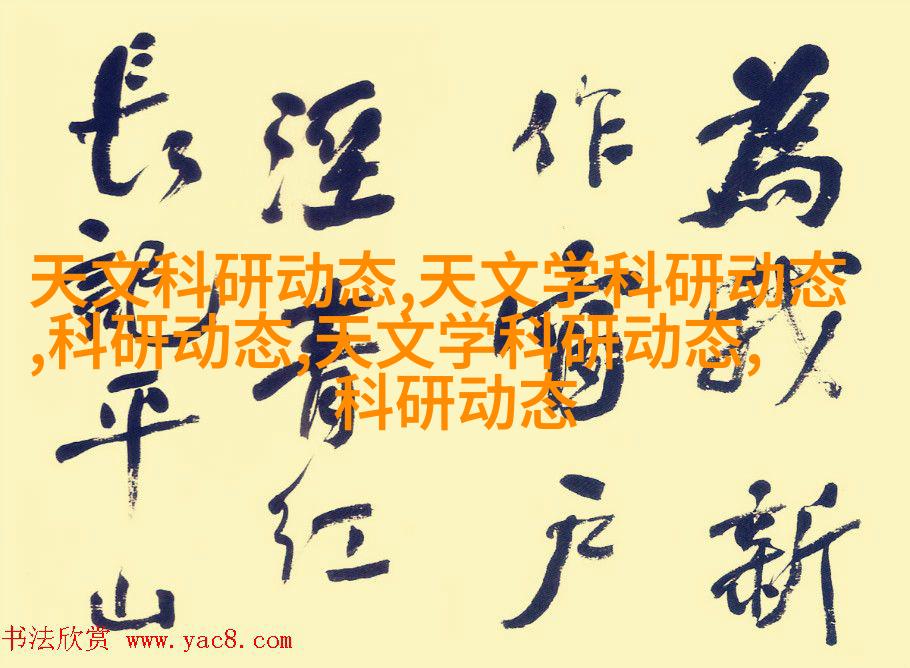 為我新
作窗户
溼青红
長記平山
天文科研动态,天文学科研动态
,科研动态,天文学科研动态,
科研动态
书法欣赏 www.yac8.com